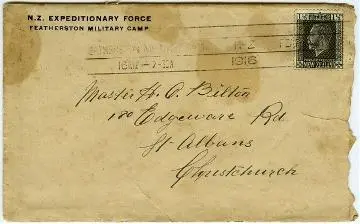 N.Z. EXPEDITIONARY FORCE
FEATHERSTON MILITARY CAMP.
N.Z
1916
Master H. C. Bilton
180 Edgeware Rd
St Albans
Christchurch